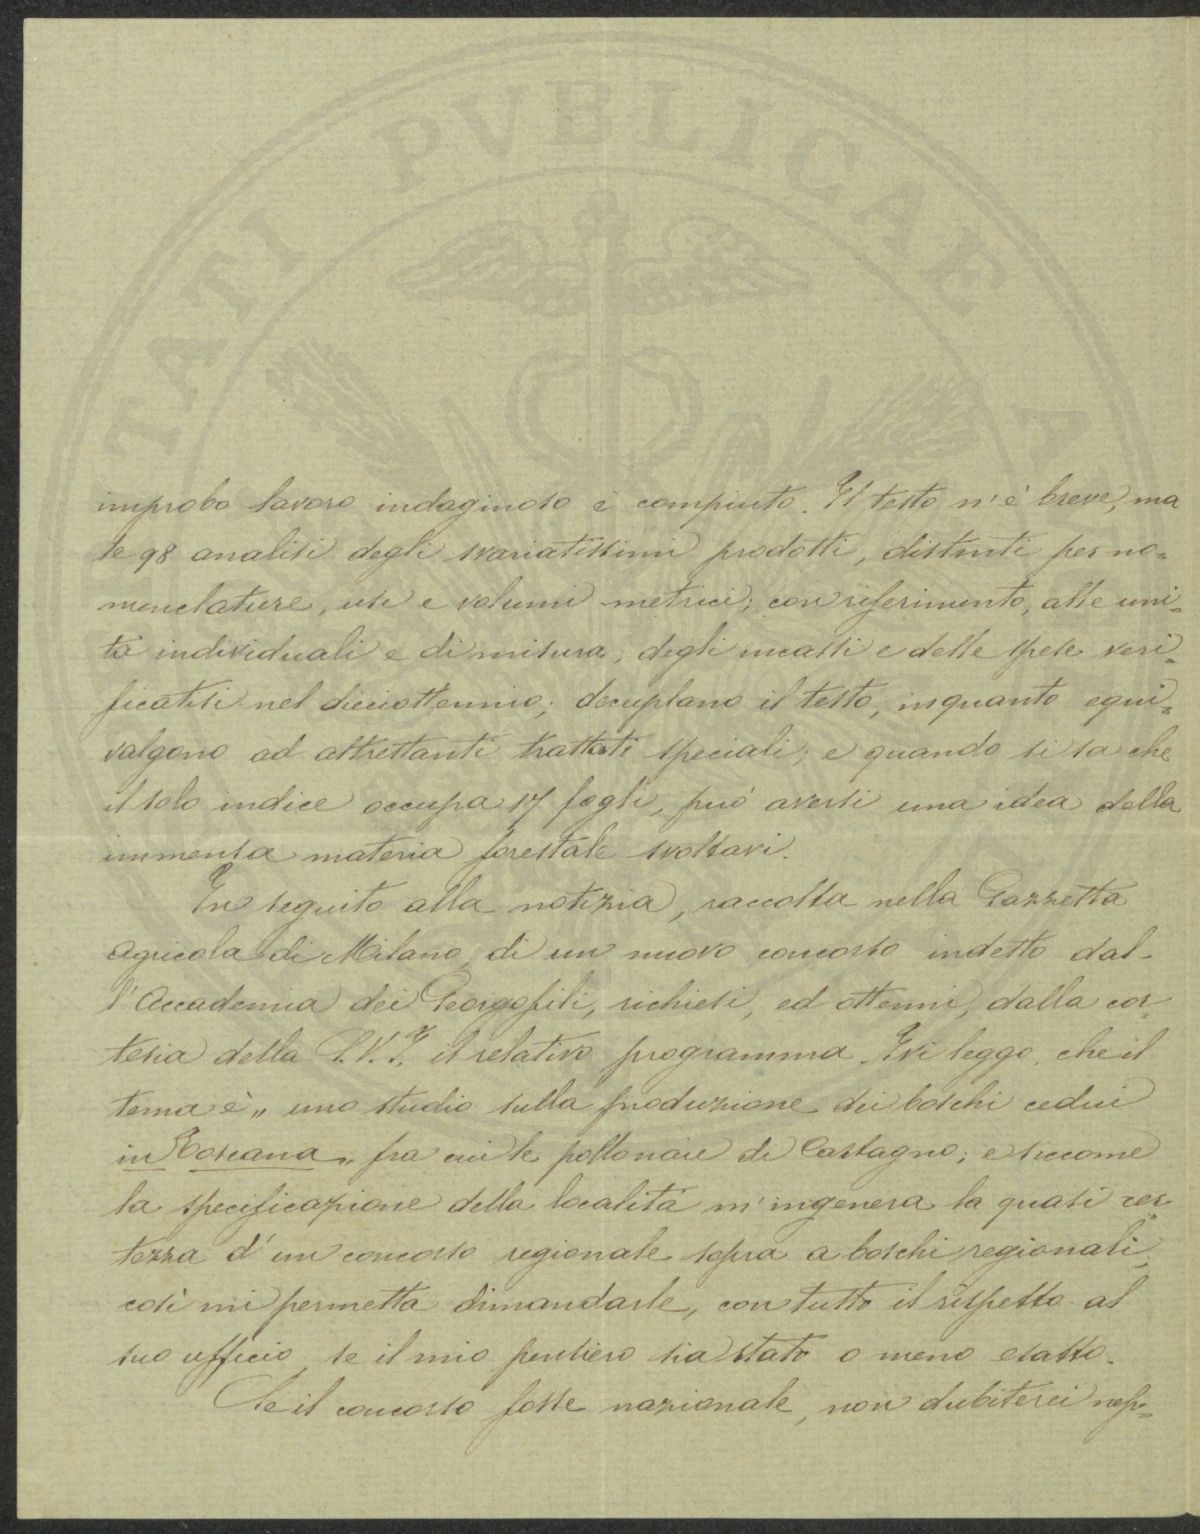 TATI PVBLICAE A
improbo lavoro indaginoso è compiuto. Il testo n'è breve, ma
le 98 analisi degli svariatissimi prodotti, distinti per no=
menclature, usi e volumi metrici; con riferimento, alle uni=
tà individuali e di misura, degli incassi e delle spese veri=
ficatisi nel dieciottennio; decuplano il testo, inquanto equi=
valgono ad altrettanti trattati speciali; e quando si sa che
il solo indice occupa 17 fogli, può aversi una idea della
immensa materia forestale svoltavi.
In seguito alla notizia, raccolta nella Gazzetta
Agricola di Milano, di un nuovo concorso indetto dal-
l'Accademia dei Georgofili, richiesi, ed ottenni, dalla cor=
tesia della S.V.I. il relativo programma. Ivi leggo, che il
tema è „ uno studio sulla produzione dei boschi cedui
in Toscana „ fra cui le pollonaie di Castagno; e siccome
la specificazione della località m'ingenera la quasi cer=
tezza d'un concorso regionale sopra a boschi regionali,
così mi permetta dimandarle, con tutto il rispetto al
suo ufficio, se il mio pensiero sia stato o meno esatto.
Se il concorso fosse nazionale, non dubiterei nep=